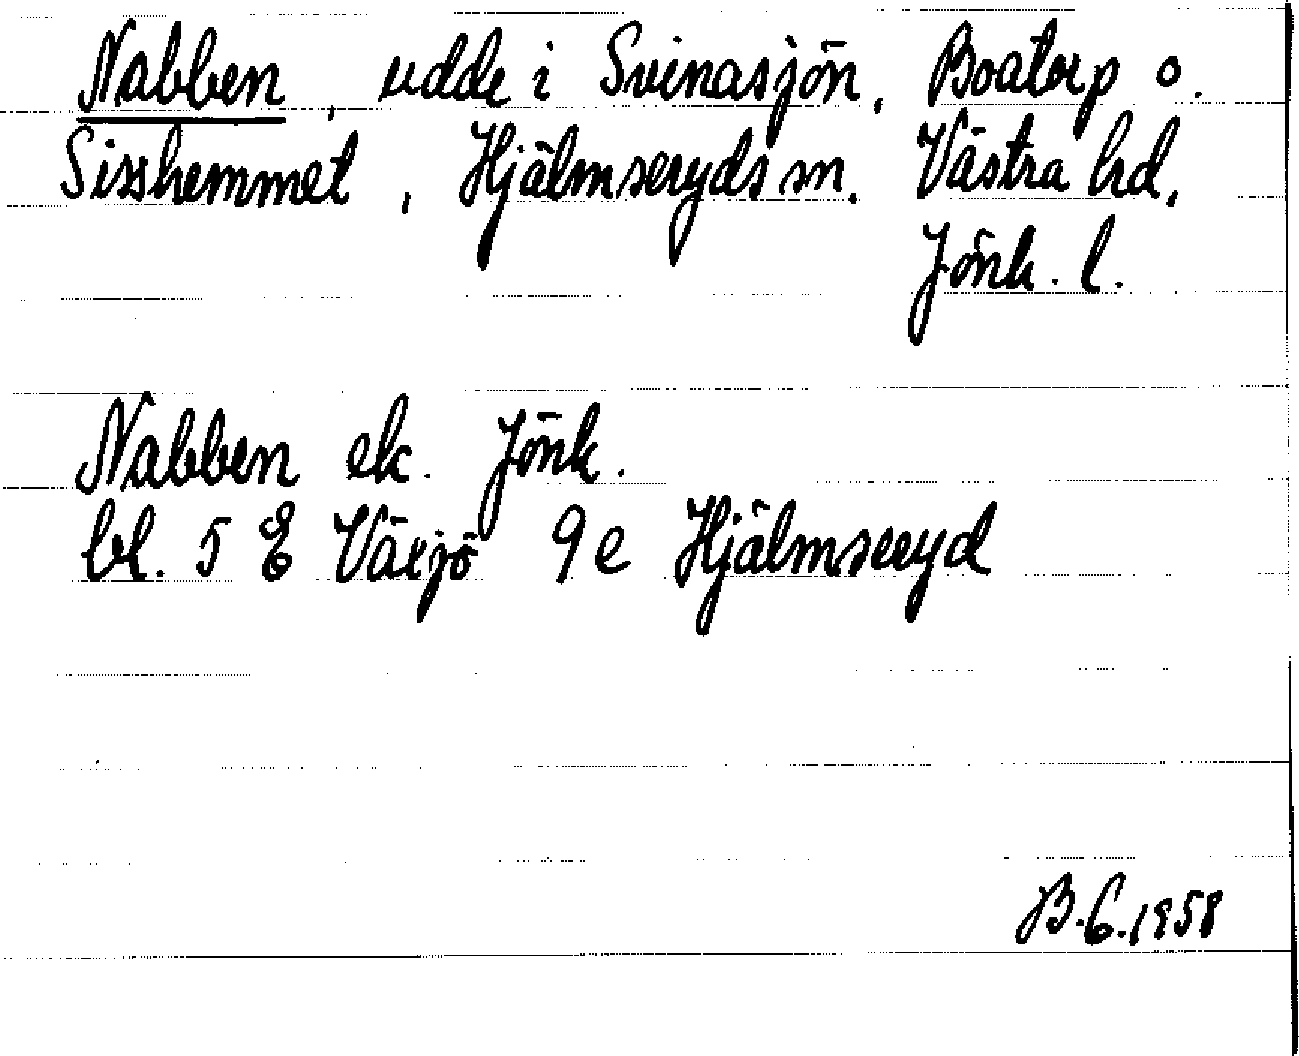 Nabben, udde i Svinasjön, Boatorp o.
Sisshemmet, Hjälmseryds sn. Västra hd,
Jönk. l.
Nabben ek. Jönk.
bl. 5 E Växjö 9 e Hjälmseryd
B.G.1958